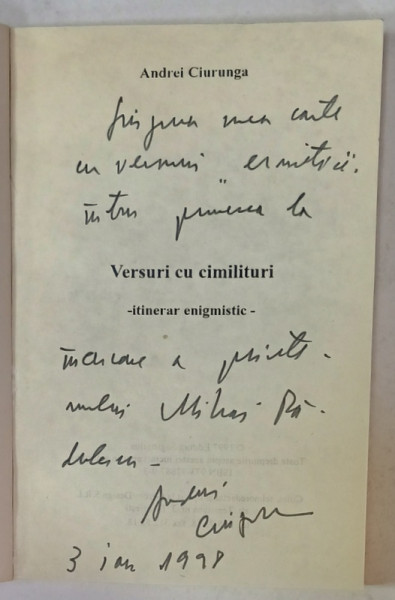 Andrei Ciurunga
Singura mea carte
cu versuri "ermetice",
întru punerea la
Versuri cu cimilituri
-itinerar enigmistic -
încercare a priete-
nului Mihai Ră-
dulescu -
Andrei
Ciurunga
3 ian 1998